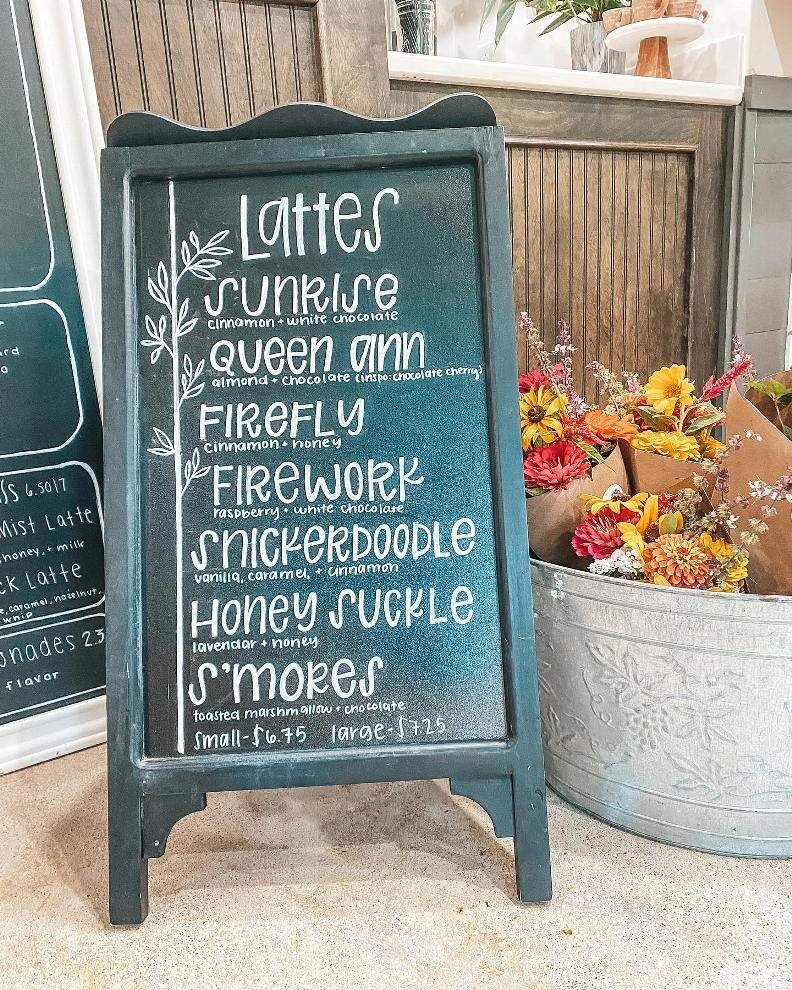 Lattes
SUNRISE
cinnamon + white chocolate
QUEEN ANN
almond + chocolate (inspo: chocolate cherry)
FIREFLY
cinnamon + honey
FIREWORK
raspberry + white chocolate
SNICKERDOODLE
vanilla, caramel, + cinnamon
HONEY SUCKLE
lavendar + honey
S'MORES
toasted marshmallow + chocolate
small-$6.75 large-$7.25
6.50|7
Mist Latte
honey, + milk
Latte
caramel, hazelnut,
whip
2.3
flavor